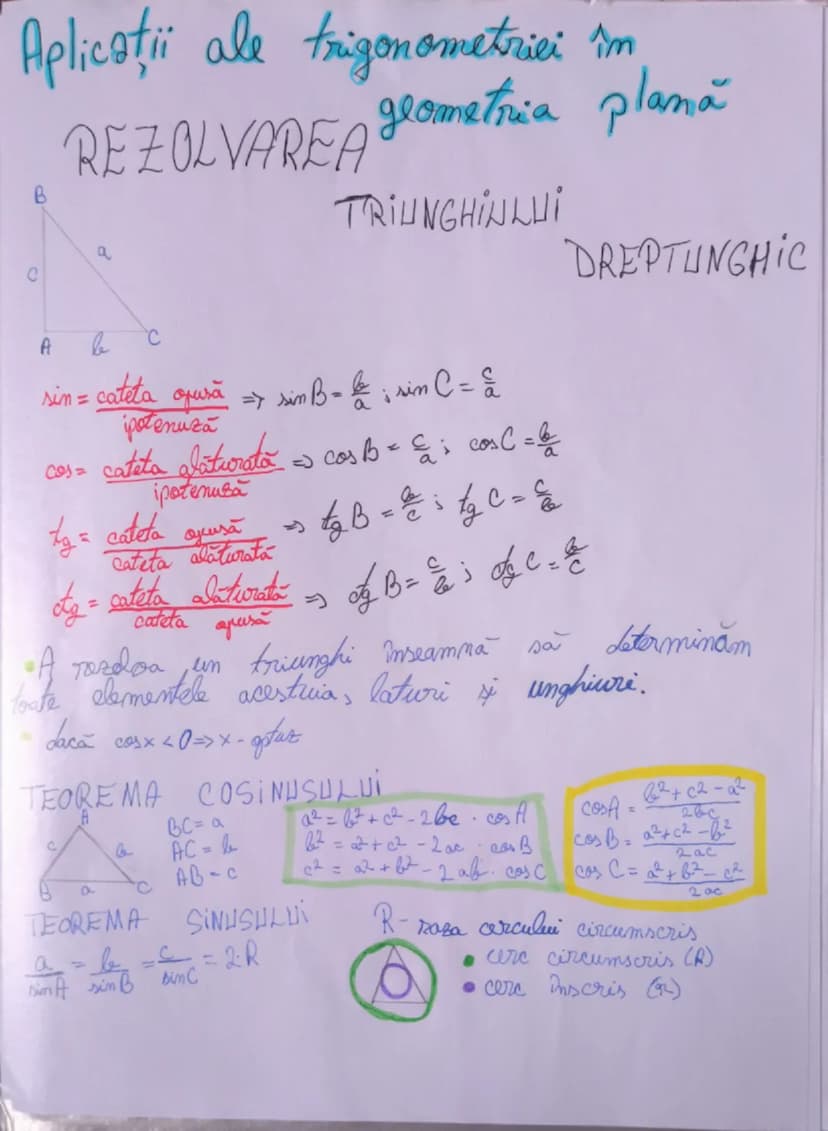 Aplicații ale trigonometriei în
geometria plană
REZOLVAREA
TRIUNGHIULUI
DREPTUNGHIC
B
a
c
A b C
sin = cateta opusă / ipotenuză => sin B = b/a ; sin C = c/a
cos = cateta alăturată / ipotenuză => cos B = c/a ; cos C = b/a
tg = cateta opusă / cateta alăturată => tg B = b/c ; tg C = c/b
ctg = cateta alăturată / cateta opusă => ctg B = c/b ; ctg C = b/c
• A rezolva un triunghi înseamnă să determinăm
toate elementele acestuia, laturi și unghiuri.
• dacă cos x < 0 => x - optuz
TEOREMA COSINUSULUI
A
c b
B a C
BC = a
AC = b
AB = c
a² = b² + c² - 2bc · cos A
b² = a² + c² - 2ac · cos B
c² = a² + b² - 2ab · cos C
cos A = b² + c² - a² / 2bc
cos B = a² + c² - b² / 2ac
cos C = a² + b² - c² / 2ac
TEOREMA SINUSULUI
a/sin A = b/sin B = c/sin C = 2·R
R - raza cercului circumscris
• cerc circumscris (R)
• cerc înscris (r)